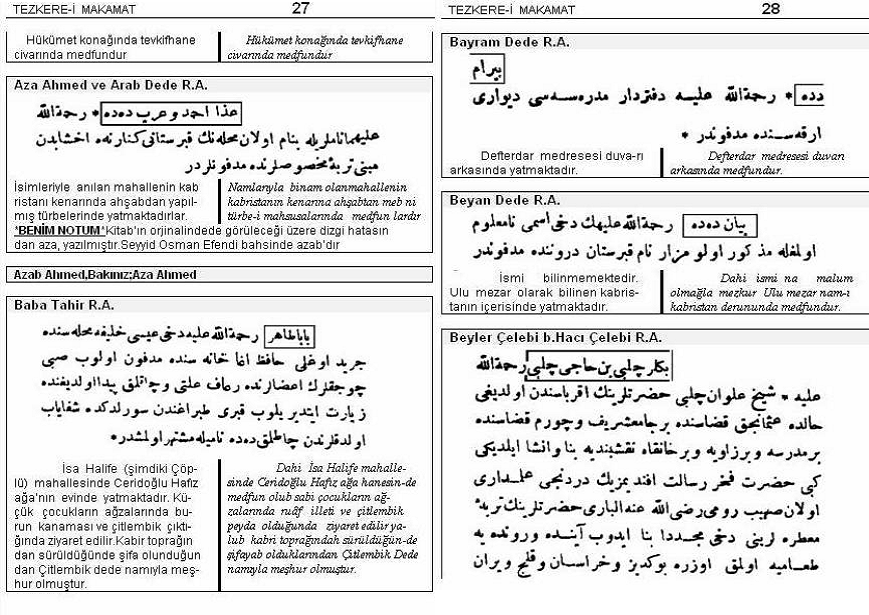 TEZKERE-İ MAKAMAT 27
Hükümet konağında tevkifhane
civarında medfundur
Hükûmet konağında tevkifhane
civarında medfundur
Aza Ahmed ve Arab Dede R.A.
عذا احمد و عرب دده * رحمة الله
عليهمانام‌لريله بنام اولان محله‌نك قبرستانى كنارنده اخشابدن
مبنى تربۀ مخصوصه‌لرنده مدفونلردر
İsimleriyle anılan mahallenin kab
ristanı kenarında ahşabdan yapıl-
mış türbelerinde yatmaktadırlar.
Namlarıyla binam olanmahallenin
kabristanın kenarına ahşabtan meb ni
türbe-i mahsusalarında medfun lardır
*BENİM NOTUM*Kitab'ın orjinalindede görüleceği üzere dizgi hatasın
dan aza, yazılmıştır.Seyyid Osman Efendi bahsinde azab'dır
Azab Ahmed,Bakınız;Aza Ahmed
Baba Tahir R.A.
باباطاهر رحمة الله عليه دخى عيسى خليفه محله سنده
جريد اوغلى حافظ اغا خانه سنده مدفون اولوب صبى
چوجقلرك اعضالرنده رعاف علتى و چاتلق پيدا اولديغنده
زيارت ايتدير يلوب قبرى طپراغندن سورلدكده شفاياب
اولدقلرندن چاطلق دده ناميله مشتهر اولمشدر *
İsa Halife (şimdiki Çöp-
lü) mahallesinde Ceridoğlu Hafız
ağa'nın evinde yatmaktadır. Kü-
çük çocukların ağzalarında bu-
run kanaması ve çitlembik çıktı-
ğında ziyaret edilir.Kabir toprağın
dan sürüldüğünde şifa olunduğun
dan Çitlembik dede namıyla meş-
hur olmuştur.
Dahi İsa Halife mahalle-
sinde Ceridoğlu Hafız ağa hanesin-de
medfun olub sabi çocukların ağ-
zalarında ruâf illeti ve çitlembik
peyda olduğunda ziyaret edilir ya-
lub kabri toprağındah sürüldüğün-de
şifayab olduklarından Çitlembik Dede
namıyla meşhur olmuştur.
TEZKERE-İ MAKAMAT 28
Bayram Dede R.A.
بيرام
دده * رحمة الله عليه دفتردار مدرسه سى ديوارى
ارقه سنده مدفوندر *
Defterdar medresesi duva-rı
arkasında yatmaktadır.
Defterdar medresesi duvarı
arkasında medfundur.
Beyan Dede R.A.
بيان دده رحمة الله عليهك دخى اسمى نامعلوم
اولمغله مذكور اولو مزار نام قبرستان دروننده مدفوندر
İsmi bilinmemektedir.
Ulu mezar olarak bilinen kabris-
tanın içerisinde yatmaktadır.
Dahi ismi na malum
olmağla mezkur Ulu mezar nam-ı
kabristan derununda medfundur.
Beyler Çelebi b.Hacı Çelebi R.A.
بكلر چلبى بن حاجى چلبى رحمة الله
عليه * شيخ علوان چلبى حضرتلرينك اقرباسندن اولديغى
حالده عثمانجق قضاسنده بر جامعشريف و چورم قضاسنده
بر مدرسه و بر زاويه و بر خانقاه نقشبنديه بنا و انشا ايلديكى
كبى حضرت فخر رسالت افنديمزيك دردنجى علمدارى
اولان صهيب رومى رضى الله عنه البارى حضرتلرينك تربۀ
معطره لربنى دخى مجددا بنا ايدوب آينده و رونده به
طعاميه اولمق اوزره بوكديز و خراسان و قليج ويران